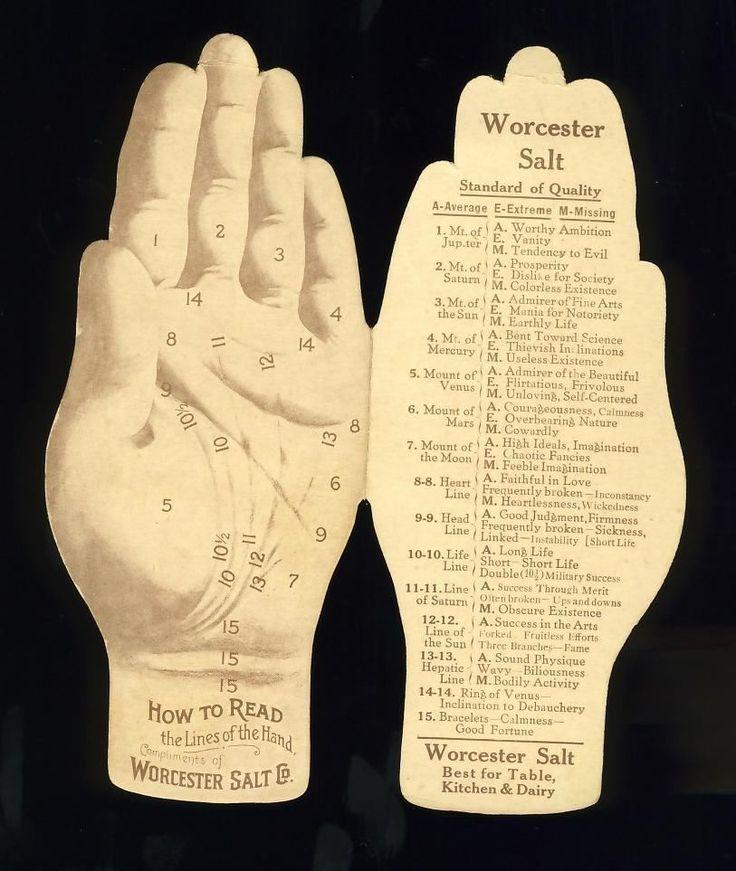 1
2
3
4
14
8
11
12
14
9
10½
10
13
8
5
6
9
10½
11
12
10
13
7
15
15
15
How to Read
the Lines of the Hand,
Compliments of
Worcester Salt Co.
Worcester
Salt
Standard of Quality
A-Average E-Extreme M-Missing
1. Mt. of Jupiter
A. Worthy Ambition
E. Vanity
M. Tendency to Evil
2. Mt. of Saturn
A. Prosperity
E. Dislike for Society
M. Colorless Existence
3. Mt. of the Sun
A. Admirer of Fine Arts
E. Mania for Notoriety
M. Earthly Life
4. Mt. of Mercury
A. Bent Toward Science
E. Thievish Inclinations
M. Useless Existence
5. Mount of Venus
A. Admirer of the Beautiful
E. Flirtatious, Frivolous
M. Unloving, Self-Centered
6. Mount of Mars
A. Courageousness, Calmness
E. Overbearing Nature
M. Cowardly
7. Mount of the Moon
A. High Ideals, Imagination
E. Chaotic Fancies
M. Feeble Imagination
8-8. Heart Line
A. Faithful in Love
Frequently broken—Inconstancy
M. Heartlessness, Wickedness
9-9. Head Line
A. Good Judgment, Firmness
Frequently broken—Sickness,
Linked—Instability [Short Life
10-10. Life Line
A. Long Life
Short—Short Life
Double (10½) Military Success
11-11. Line of Saturn
A. Success Through Merit
Often broken—Ups and downs
M. Obscure Existence
12-12. Line of the Sun
A. Success in the Arts
Forked Fruitless Efforts
Three Branches—Fame
13-13. Hepatic Line
A. Sound Physique
Wavy—Biliousness
M. Bodily Activity
14-14. Ring of Venus—
Inclination to Debauchery
15. Bracelets—Calmness—
Good Fortune
Worcester Salt
Best for Table,
Kitchen & Dairy